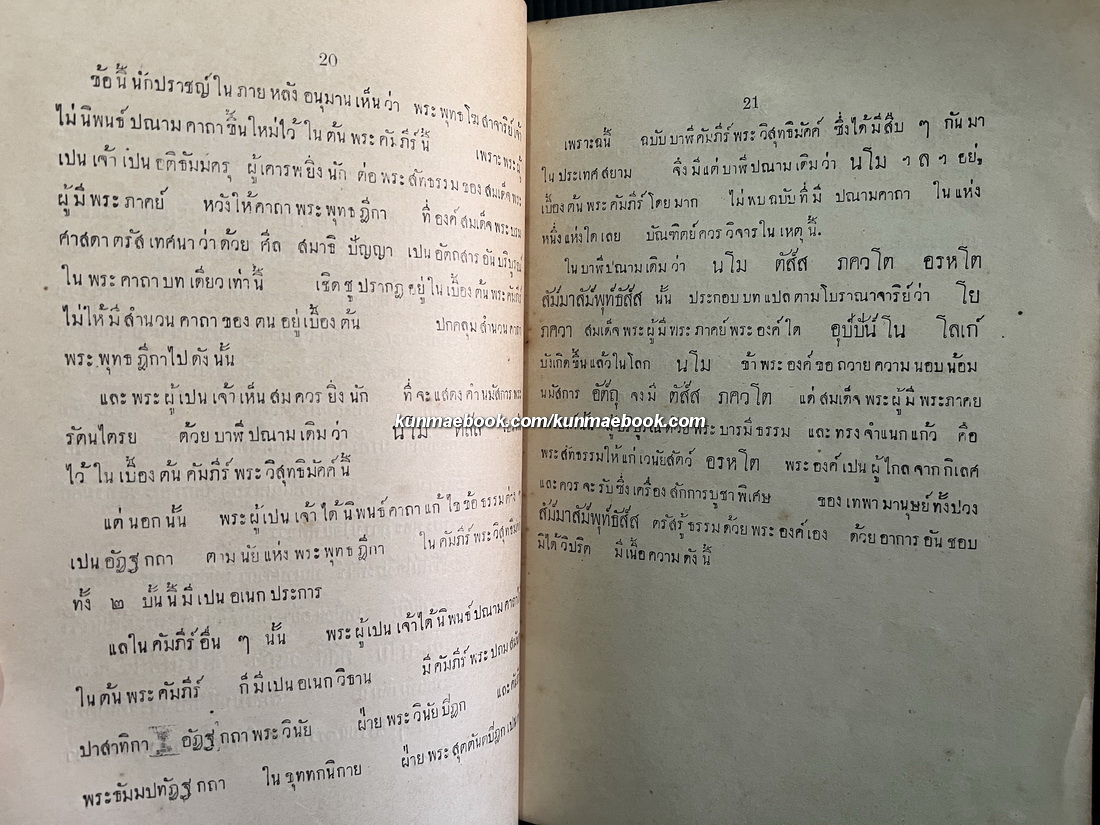 20
ข้อนี้ นักปราชญ์ ใน ภาย หลัง อนุมาน เห็น ว่า พระ พุทธ โฆ สาจาริย์ เจ้า
ไม่ นิพนธ์ ปณาม คาถา ขึ้น ใหม่ ไว้ ใน ต้น พระ คัมภีร์ นี้ เพราะ พระ ผู้
เปน เจ้า เปน อติธัมมครุ ผู้ เคารพ ยิ่ง นัก ต่อ พระ สัทธรรม ของ สมเด็จ พระ
ผู้ มี พระ ภาคย์ หวัง ให้ คาถา พระ พุทธ ฎีกา ที่ องค์ สมเด็จ พระ บรม
ศาสดา ตรัส เทศนา ว่า ด้วย ศีล สมาธิ ปัญญา เปน อัตถสาร อัน บริบูรณ์
ใน พระ คาถา บท เดียว เท่า นี้ เชิด ชู ปรากฎ อยู่ ใน เบื้อง ต้น พระ คัมภีร์
ไม่ ให้ มี สำนวน คาถา ของ ตน อยู่ เบื้อง ต้น ปกคลุม สำนวน คาถา
พระ พุทธ ฎีกา ไป ดัง นั้น
และ พระ ผู้ เปน เจ้า เห็น สม ควร ยิ่ง นัก ที่ จะ แสดง คำ นมัสการ พระ
รัตนไตรย ด้วย บาฬี ปณาม เดิม ว่า นโม ตัสส
ไว้ ใน เบื้อง ต้น คัมภีร์ พระ วิสุทธิมัคค์ นี้
แต่ นอก นั้น พระ ผู้ เปน เจ้า ได้ นิพนธ์ คาถา แก้ ไข ข้อ ธรรม ต่าง ๆ
เปน อัฏฐ กถา ตาม นัย แห่ง พระ พุทธ ฎีกา ใน คัมภีร์ พระ วิสุทธิมัคค์
ทั้ง ๒ บั้น นี้ มี เปน อเนก ประการ
แล ใน คัมภีร์ อื่น ๆ นั้น พระ ผู้ เปน เจ้า ได้ นิพนธ์ ปณาม คาถา ไว้
ใน ต้น พระ คัมภีร์ ก็ มี เปน อเนก วิธาน มี คัมภีร์ พระ ปถม สมันต
ปาสาทิกา อัฏฐ กถา พระ วินัย ฝ่าย พระ วินัย ปิฎก และ คัมภีร์
พระ ธัมมปทัฏฐ กถา ใน ขุททกนิกาย ฝ่าย พระ สุตตันตปิฎก เปน
21
เพราะ ฉนี้ ฉบับ บาฬี คัมภีร์ พระ วิสุทธิมัคค์ ซึ่ง ได้ มี สืบ ๆ กัน มา
ใน ประเทศ สยาม จึง มี แต่ บาฬี ปณาม เดิม ว่า นโม ฯ ล ฯ อยู่
เบื้อง ต้น พระ คัมภีร์ โดย มาก ไม่ พบ ฉบับ ที่ มี ปณามคาถา ใน แห่ง
หนึ่ง แห่ง ใด เลย บัณฑิตย์ ควร วิจาร ใน เหตุ นี้.
ใน บาฬี ปณาม เดิม ว่า นโม ตัสส ภควโต อรหโต
สัมมาสัมพุทธัสส นั้น ประกอบ บท แปล ตาม โบราณาจาริย์ ว่า โย
ภควา สมเด็จ พระ ผู้ มี พระ ภาคย์ พระ องค์ ใด อุปปันโน โลเก
บังเกิด ขึ้น แล้ว ใน โลก นโม ข้า พระ องค์ ขอ ถวาย ความ นอบ น้อม
นมัสการ อัตถุ จง มี ตัสส ภควโต แด่ สมเด็จ พระ ผู้ มี พระ ภาคย
ผู้ บริบูรณ์ ด้วย พระ บารมี ธรรม และ ทรง จำแนก แก้ว คือ
พระ สัทธรรม ให้ แก่ เวนัย สัตว์ อรหโต พระ องค์ เปน ผู้ ไกล จาก กิเลศ
และ ควร จะ รับ ซึ่ง เครื่อง สักการ บูชา พิเศษ ของ เทพา มานุษย์ ทั้ง ปวง
สัมมาสัมพุทธัสส ตรัส รู้ ธรรม ด้วย พระ องค์ เอง ด้วย อาการ อัน ชอบ
มิ ได้ วิปริต มี เนื้อ ความ ดัง นี้
kunmaebook.com/kunmaebook.com